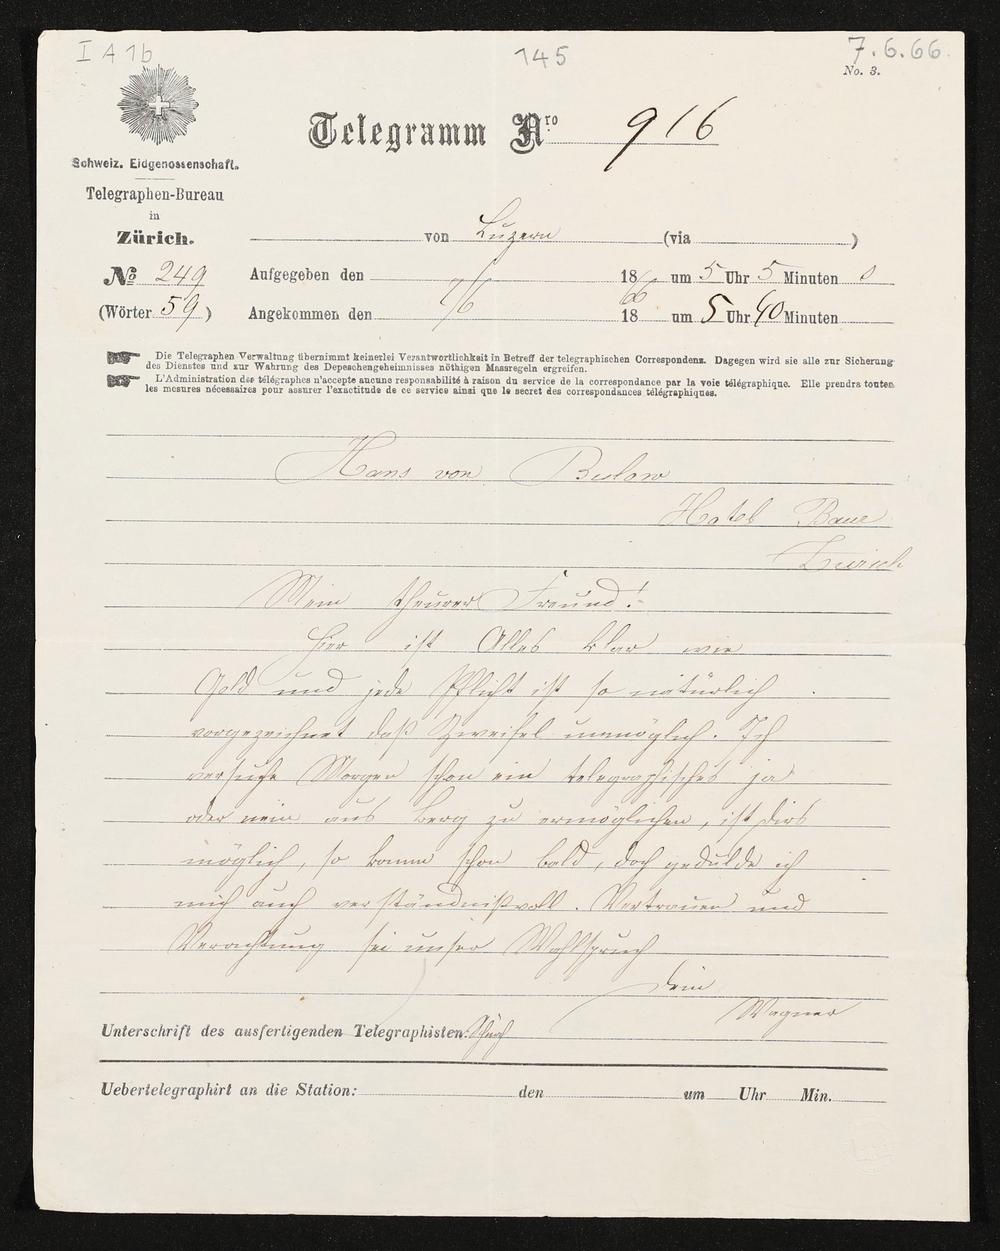 I A 1b
145
7.6.66.
No. 3.
Telegramm Nro 916
Schweiz. Eidgenossenschaft.
Telegraphen-Bureau
in
Zürich.
von Luzern (via )
No 249 Aufgegeben den 7/6 1866 um 5 Uhr 5 Minuten
(Wörter 59) Angekommen den 7/6 18 um 5 Uhr 40 Minuten
Die Telegraphen Verwaltung übernimmt keinerlei Verantwortlichkeit in Betreff der telegraphischen Correspondenz. Dagegen wird sie alle zur Sicherung
des Dienstes und zur Wahrung des Depeschengeheimnisses nöthigen Massregeln ergreifen.
L'Administration des télégraphes n'accepte aucune responsabilité à raison du service de la correspondance par la voie télégraphique. Elle prendra toutes
les mesures nécessaires pour assurer l'exactitude de ce service ainsi que le secret des correspondances télégraphiques.
Hans von Bulow
Hotel Baur
Zurich
Mein theurer Freund!
Hier ist Alles klar wie
Gold und jede Pflicht ist so natürlich
vorgezeichnet daß Zweifel unmöglich. Ich
versuche Morgen schon ein telegraphisches ja
oder nein aus Berg zu ermöglichen, ist dirs
möglich, so komm schon bald, doch gedulde ich
mich auch verständnißvoll. Vertrauen und
Verachtung sei unser Wahlspruch
Dein
Wagner
Unterschrift des ausfertigenden Telegraphisten:
Uebertelegraphirt an die Station: den um Uhr Min.